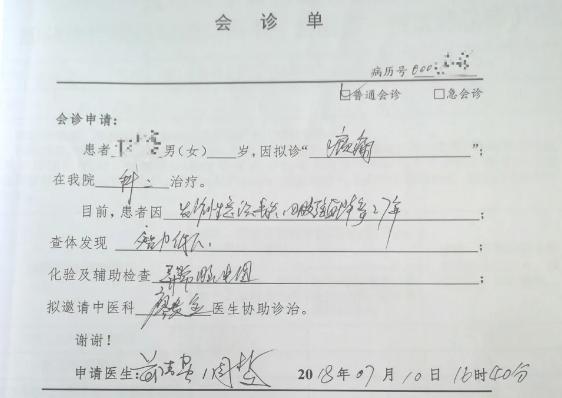 会 诊 单
病历号 600
☑普通会诊 □急会诊
会诊申请:
患者 男(女) 岁,因拟诊“癫痫”;
在我院 科二 治疗。
目前,患者因 发作性意识丧失、四肢强直抽搐27年;
查体发现 智力低下;
化验及辅助检查 异常脑电图;
拟邀请中医科 医生协助诊治。
谢谢!
申请医生: 2018年07月10日16时40分